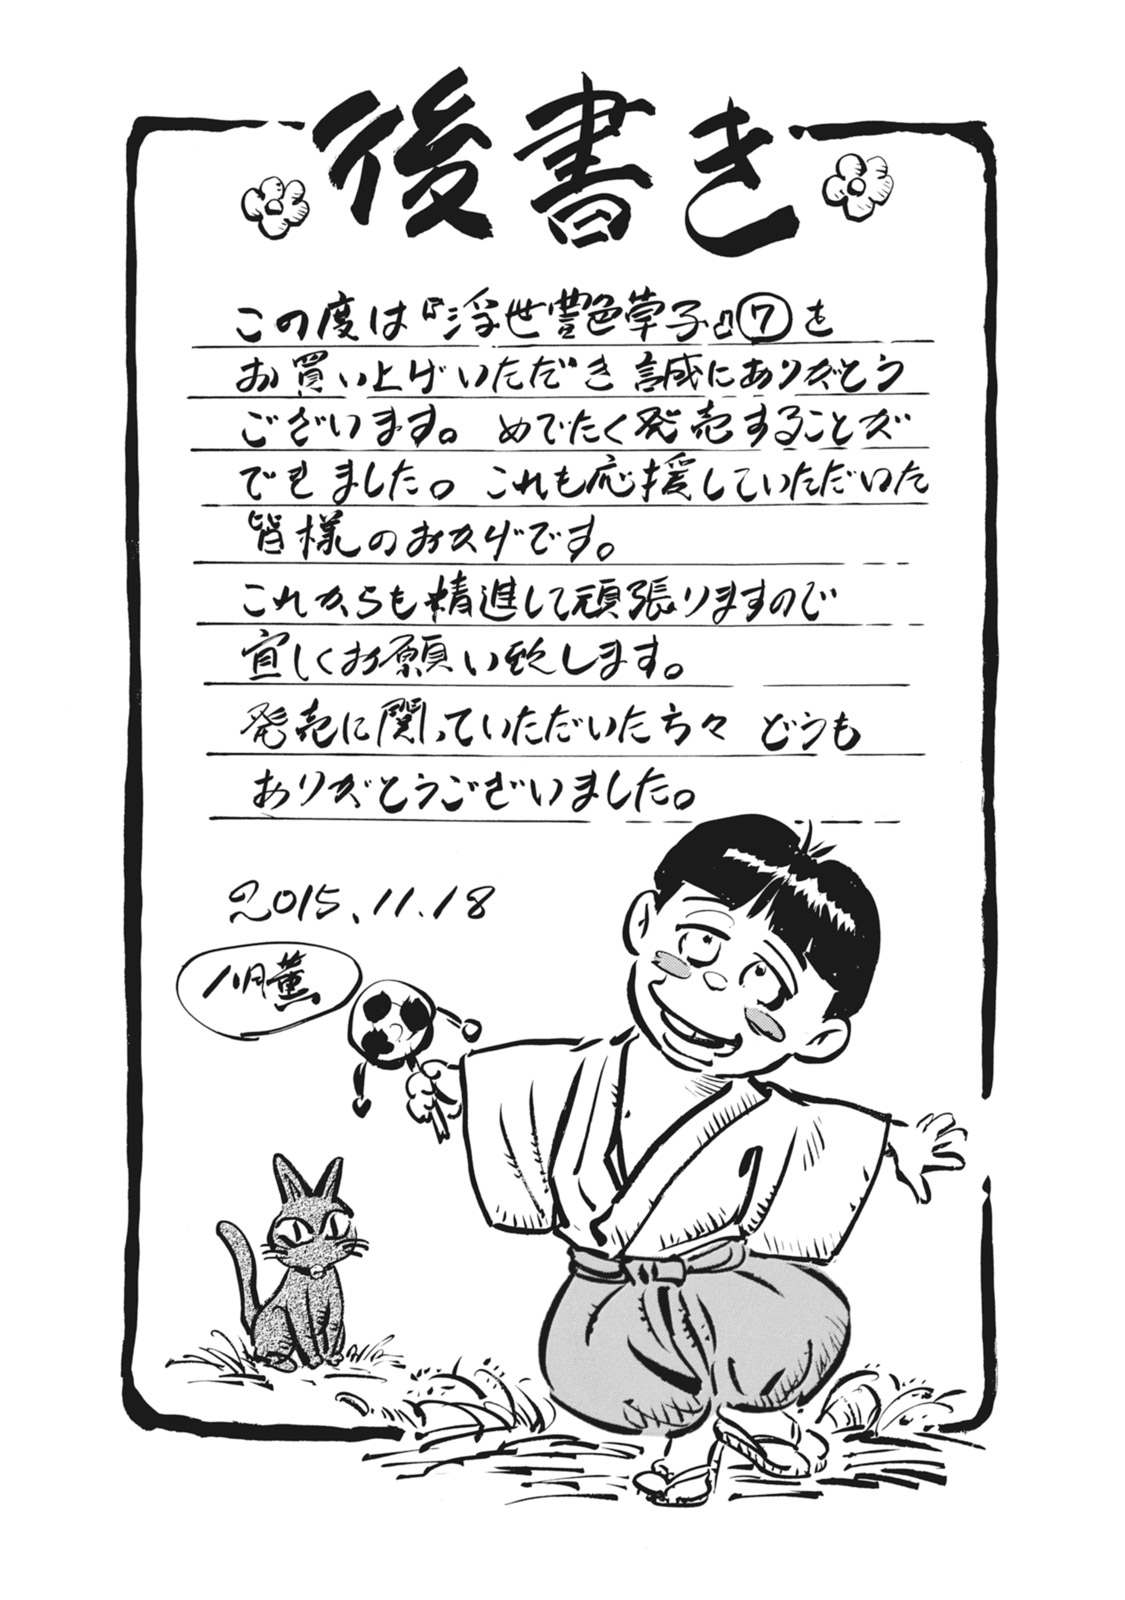 後書き
この度は『浮世艶草子』⑦を
お買い上げいただき誠にありがとう
ございます。めでたく発売することが
できました。これも応援していただいた
皆様のおかげです。
これからも精進して頑張りますので
宜しくお願い致します。
発売に関っていただいた方々 どうも
ありがとうございました。
2015.11.18
八月薫